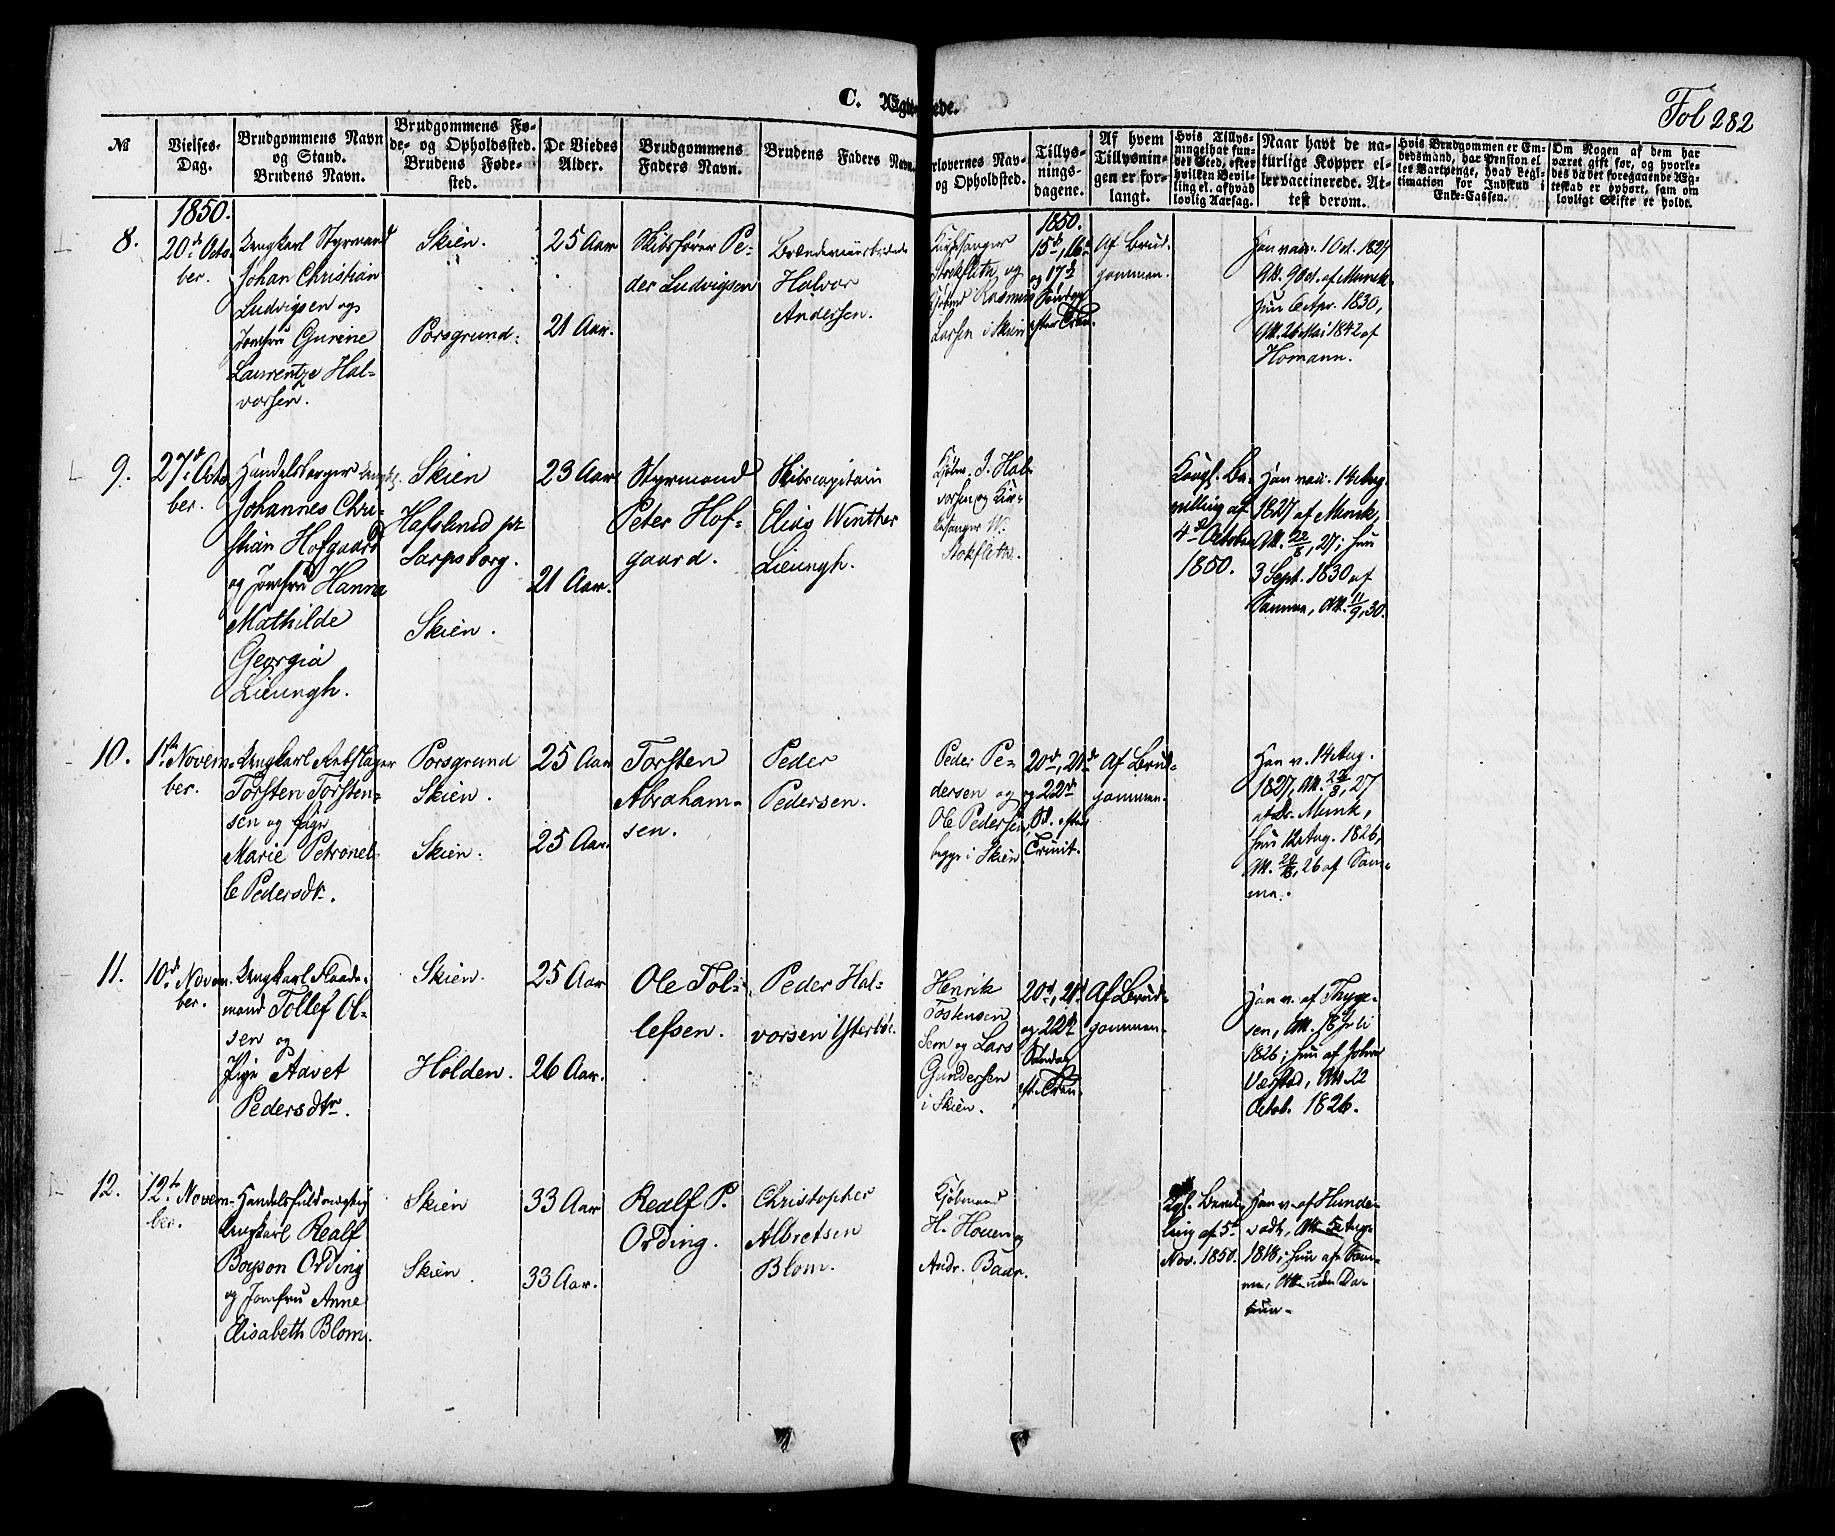 C. Ægteviede.
Fol 282
No
Vielses-
Dag.
Brudgommens Navn
og Stand.
Brudens Navn.
Brudgommens Fø-
de- og Opholdssted.
Brudens Føde-
sted.
De Viedes
Alder.
Brudgommens
Faders Navn.
Brudens Faders Navn.
orlovernes Nav-
og Opholdsted.
Tillys-
nings-
dagene.
Af hvem
Tillysnin-
gen er for-
langt.
Hvis Tillys-
ningel har fun-
det Sted, efter
hvilken Bevil-
ling el. afhvad
lovlig Aarsag.
Naar havt de na-
turlige Kopper el-
ler vaccinerede. At-
test derom.
Hvis Brudgommen er Em-
bedsmand, har Pension el-
ler Vartpenge, hvad Legi-
timation for Indskud i
Enke-Cassen.
Om Nogen af dem har
været gift før, og hvorle-
des da det foregaaende Æg-
teskab er ophørt, sam om
lovligt Skifte er holdt.
1850.
8.
20d Octo-
ber.
Ungkarl Styrmand
Johan Christian
Ludvigsen og
Jomfru Gurine
Laurentze Hal-
vorsen.
Skien.
Porsgrund.
25 Aar
21 Aar.
Skibsfører Pe-
der Ludvigsen
Halvor
Andersen.
Kirkesanger
Stockfleth, og
Rasmus
Larsen i Skien
1850.
15d, 16d
og 17d
Søndag
efter Trin.
Af Brud-
gommen.
Han vac. 1 Oct. 1827
Att. 9 Oct. af Munck.
Hun 6 Apr. 1830,
Att. 26 Mai 1842 af
Homann.
9.
27d Octo-
ber.
Handelsborger Ungkl.
Johannes Chri-
stian Hofgaard
og Jomfru Hanna
Mathilde
Georgia
Lieungh.
Skien
Hafslund pr
Sarpsborg.
Skien.
23 Aar
21 Aar.
Styrmand
Peter Hof-
gaard.
Skibscapitain
Elias Winther
Lieungh.
Kjøbm. J. Hal-
vorsen og Kir-
kesanger W.
Stokfleth.
Kongl. Be-
villing af
4d October
1850.
Han vac. 14 Aug.
1827 af Munck,
Att. 22/8, 27; hun
3 Sept. 1830 af
Samme, Att. 11/9, 30.
10.
1ste Novem-
ber.
Ungkarl Rebslager
Torsten Torsten-
sen og Pige
Marie Petronel-
le Pedersdtr.
Porsgrund
Skien.
Skien.
25 Aar
25 Aar.
Torsten
Abraham-
sen.
Peder
Pedersen.
Peder Pe-
dersen og
Ole Pedersen,
begge i Skien
20d, 21d
og 22d
S. efter
Trinit.
Af Brud-
gommen.
Han v. 14 Aug.
1827, Att. 22/8, 27
af Dr. Munk,
hun 12 Aug. 1826,
Att. 20/8, 26 af Sam-
me.
11.
10d Novem-
ber.
Ungkarl Flaade-
mand Tollef Ol-
sen og
Pige Aavet
Pedersdtr.
Skien.
Holden.
25 Aar
26 Aar.
Ole Tol-
lefsen.
Peder Hal-
vorsen Ytterbøe
Henrik
Tostensen
Sem og Lars
Gundersen
i Skien.
20d, 21d
og 22d
Søndag
eft. Trin.
Af Brud-
gommen.
Han v. af Thyge-
sen, Att. 18 Juli
1826; hun af Johan
Værstad, Att. 22
Octob. 1826.
12.
12te Novem-
ber.
Handelsfuldmægtig
Ungkarl Realf
Boyson Ording
og Jomfru Anne
Elisabeth Blom.
Skien
Skien.
33 Aar
33 Aar.
Realf P.
Ording.
Christopher
Albretsen
Blom.
Kjøbmand
H. Houen og
Andr. Baar.
Kgl. Bevil-
ling af 5t
Nov. 1850.
Han v. af Hunde-
vadt, Att. 5 Aug.
1818; hun af Sam-
me, Att. uden Da-
tum.